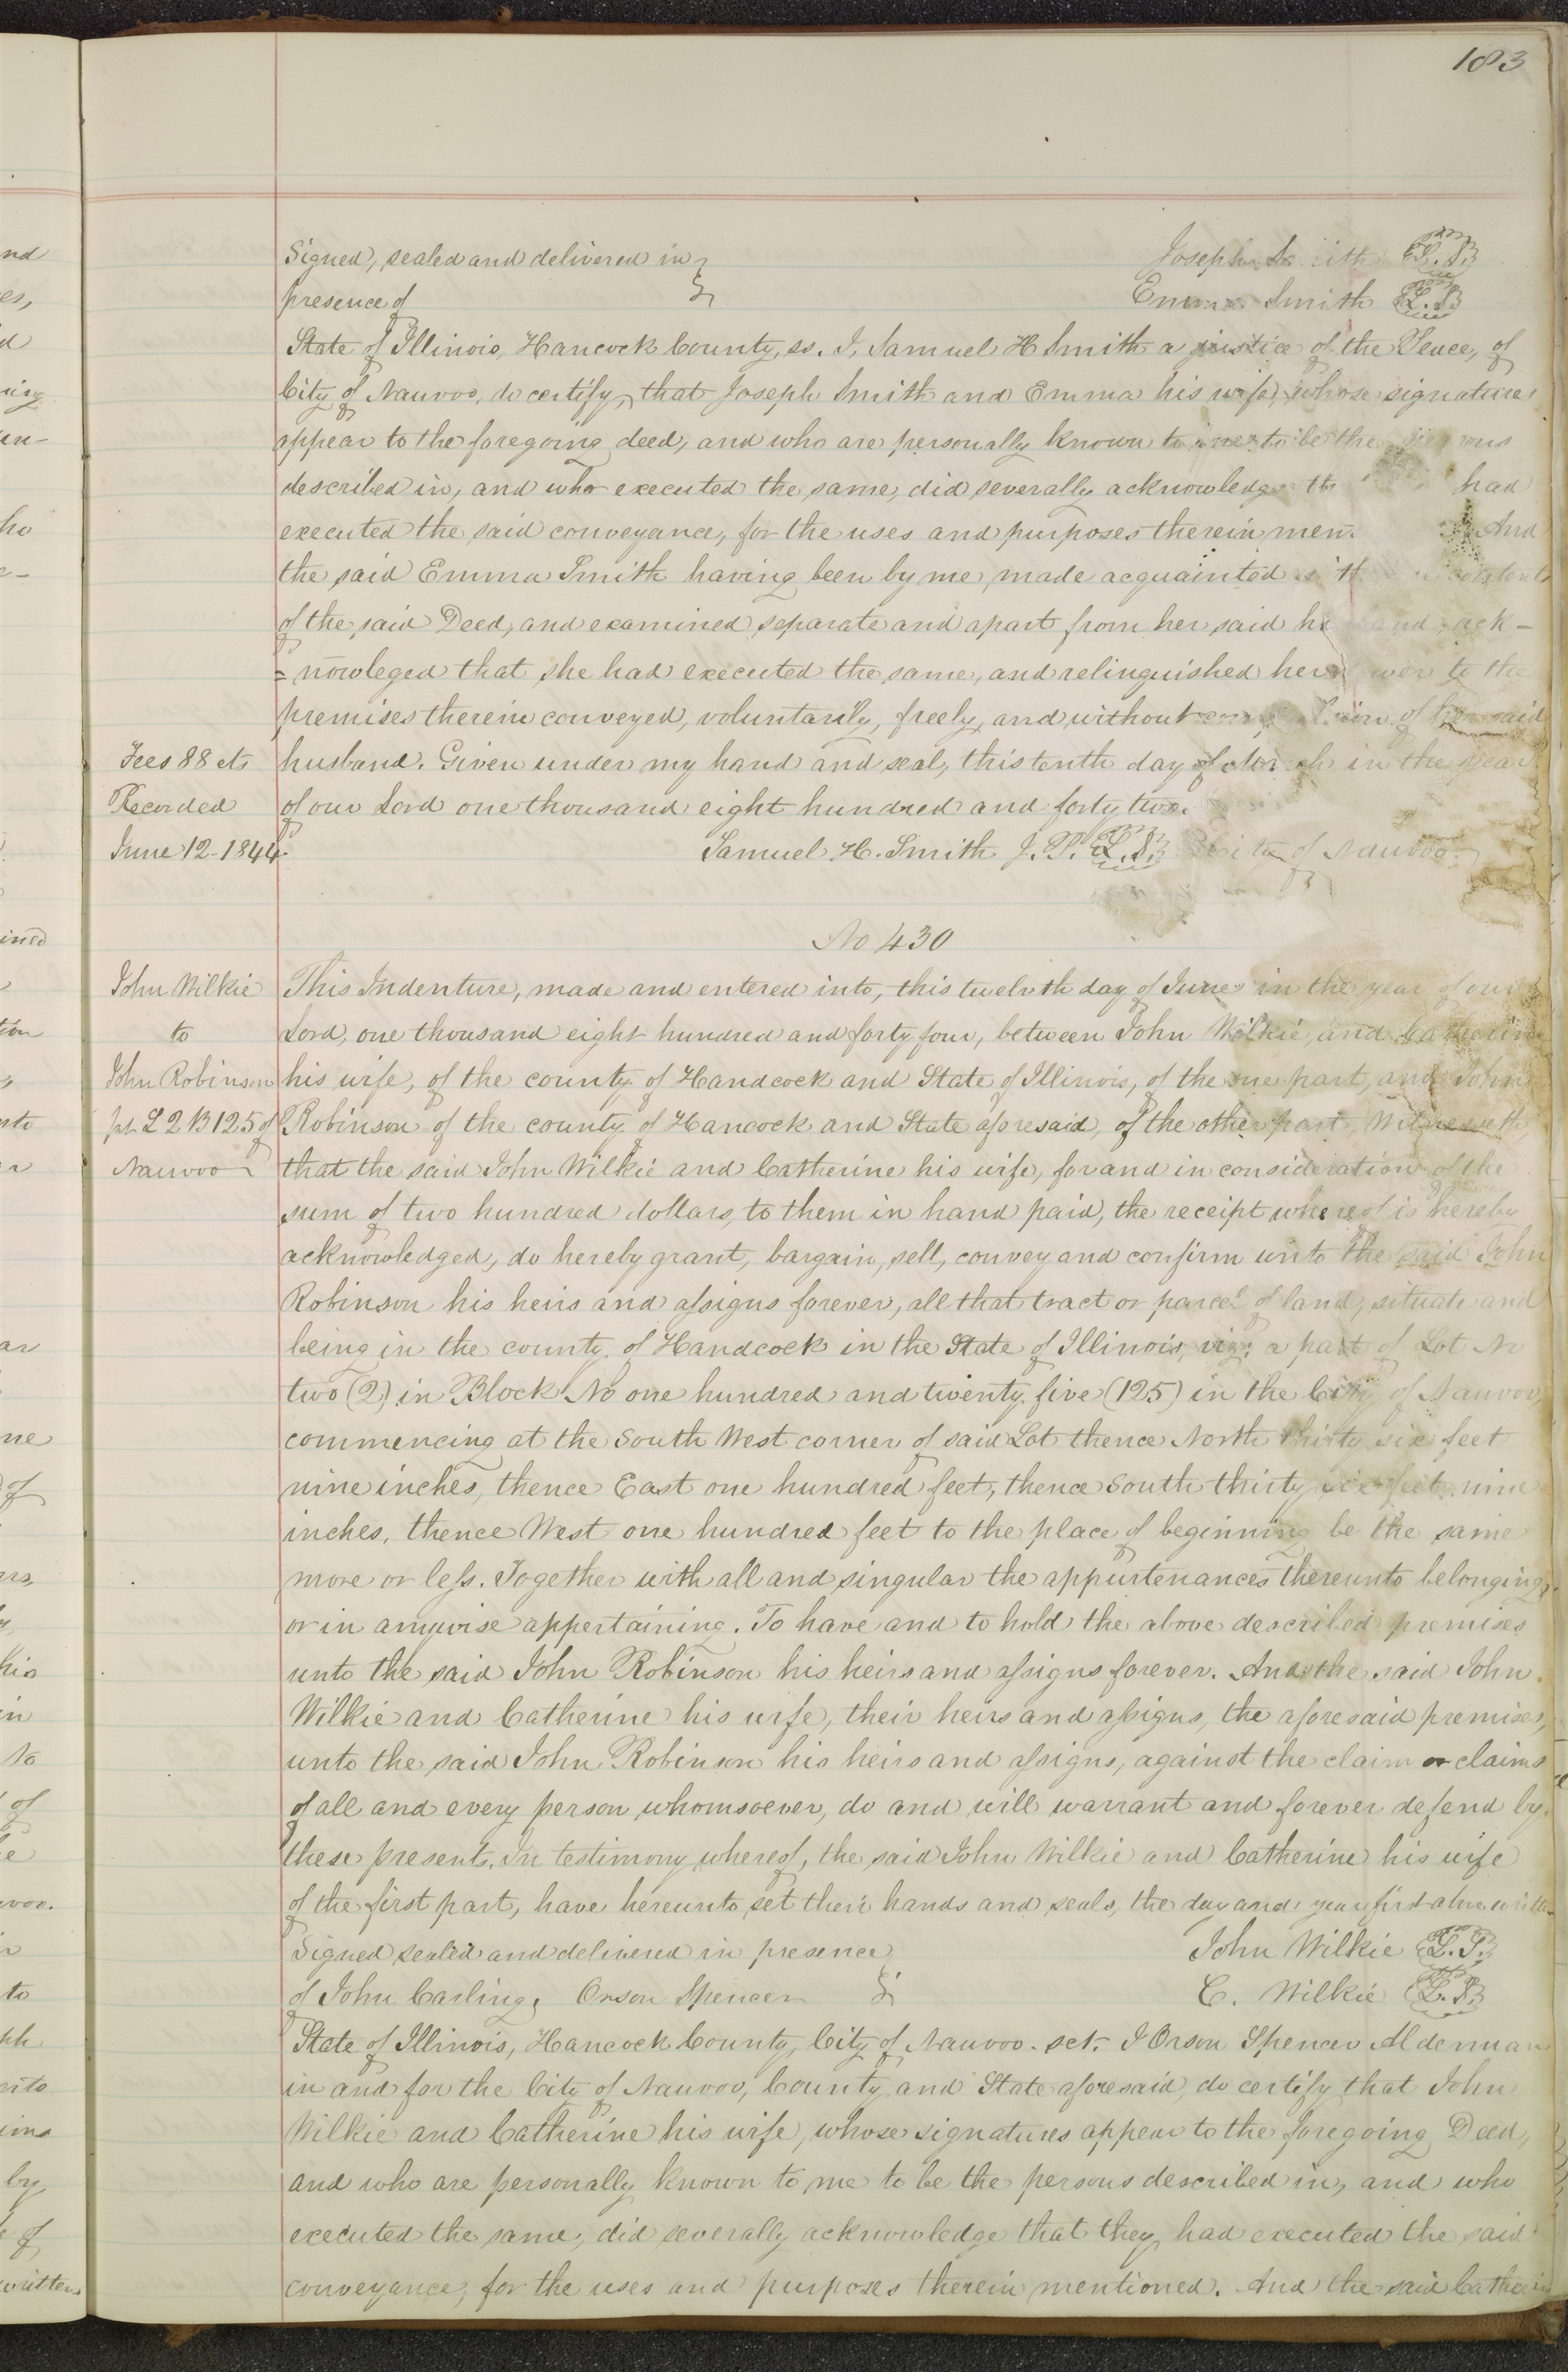 183
Signed, sealed and delivered in
presence of
Joseph Smith L.S.
Emma Smith L.S.
State of Illinois, Hancock County, ss. I, Samuel H Smith a justice of the Peace, of
City of Nauvoo, do certify, that Joseph Smith and Emma his wife, whose signatures
appear to the foregoing deed, and who are personally known to me to be the persons
described in, and who executed the same, did severally acknowledge th had
executed the said conveyance, for the uses and purposes therein men. And
the said Emma Smith having been by me, made acquainted with contents
of the said Deed, and examined separate and apart from her said husband, ack-
=nowleged that she had executed the same, and relinquished her dower to the
premises therein conveyed, voluntarily, freely, and without compulsion of her said
Fees 88 cts
husband. Given under my hand and seal, this tenth day of March in the year
Recorded
of our Lord one thousand eight hundred and forty two.
June 12-1844.
Samuel H. Smith J.P. L.S. City of Nauvoo.
No 430
John Wilkie
to
John Robinson
pt L 2 B 125 of
Nauvoo
This Indenture, made and entered into, this twelvth day of June in the year of our
Lord, one thousand eight hundred and forty four, between John Wilkie, and Catherine
his wife, of the county of Handcock and State of Illinois, of the one part, and John
Robinson of the county of Hancock and State aforesaid, of the other part, Witnesseth,
that the said John Wilkie and Catherine his wife, for and in consideration of the
sum of two hundred dollars, to them in hand paid, the receipt whereof is hereby
acknowledged, do hereby grant, bargain, sell, convey and confirm unto the said John
Robinson his heirs and assigns forever, all that tract or parcel of land, situate and
being in the county of Handcock in the State of Illinois, viz: a part of Lot No
two (2) in Block No one hundred and twenty five (125) in the City of Nauvoo,
commencing at the South West corner of said Lot thence North thirty six feet
nine inches, thence East one hundred feet, thence South thirty six feet nine
inches, thence West one hundred feet to the place of beginning be the same
more or less. Together with all and singular the appurtenances thereunto belonging,
or in anywise appertaining. To have and to hold the above described premises
unto the said John Robinson his heirs and assigns forever. And the said John
Wilkie and Catherine his wife, their heirs and assigns, the aforesaid premises,
unto the said John Robinson his heirs and assigns, against the claim or claims
of all and every person whomsoever, do and will warrant and forever defend by
these presents. In testimony whereof, the said John Wilkie and Catherine his wife
of the first part, have hereunto set their hands and seals, the day and year first above written
Signed sealed and delivered in presence
of John Carling, Orson Spencer
John Wilkie L.S.
C. Wilkie L.S.
State of Illinois, Hancock County, City of Nauvoo. sct. I Orson Spencer Alderman
in and for the City of Nauvoo, County and State aforesaid, do certify that John
Wilkie and Catherine his wife, whose signatures appear to the foregoing Deed,
and who are personally known to me to be the persons described in, and who
executed the same, did severally acknowledge that they had executed the said
conveyance, for the uses and purposes therein mentioned. And the said Catherin